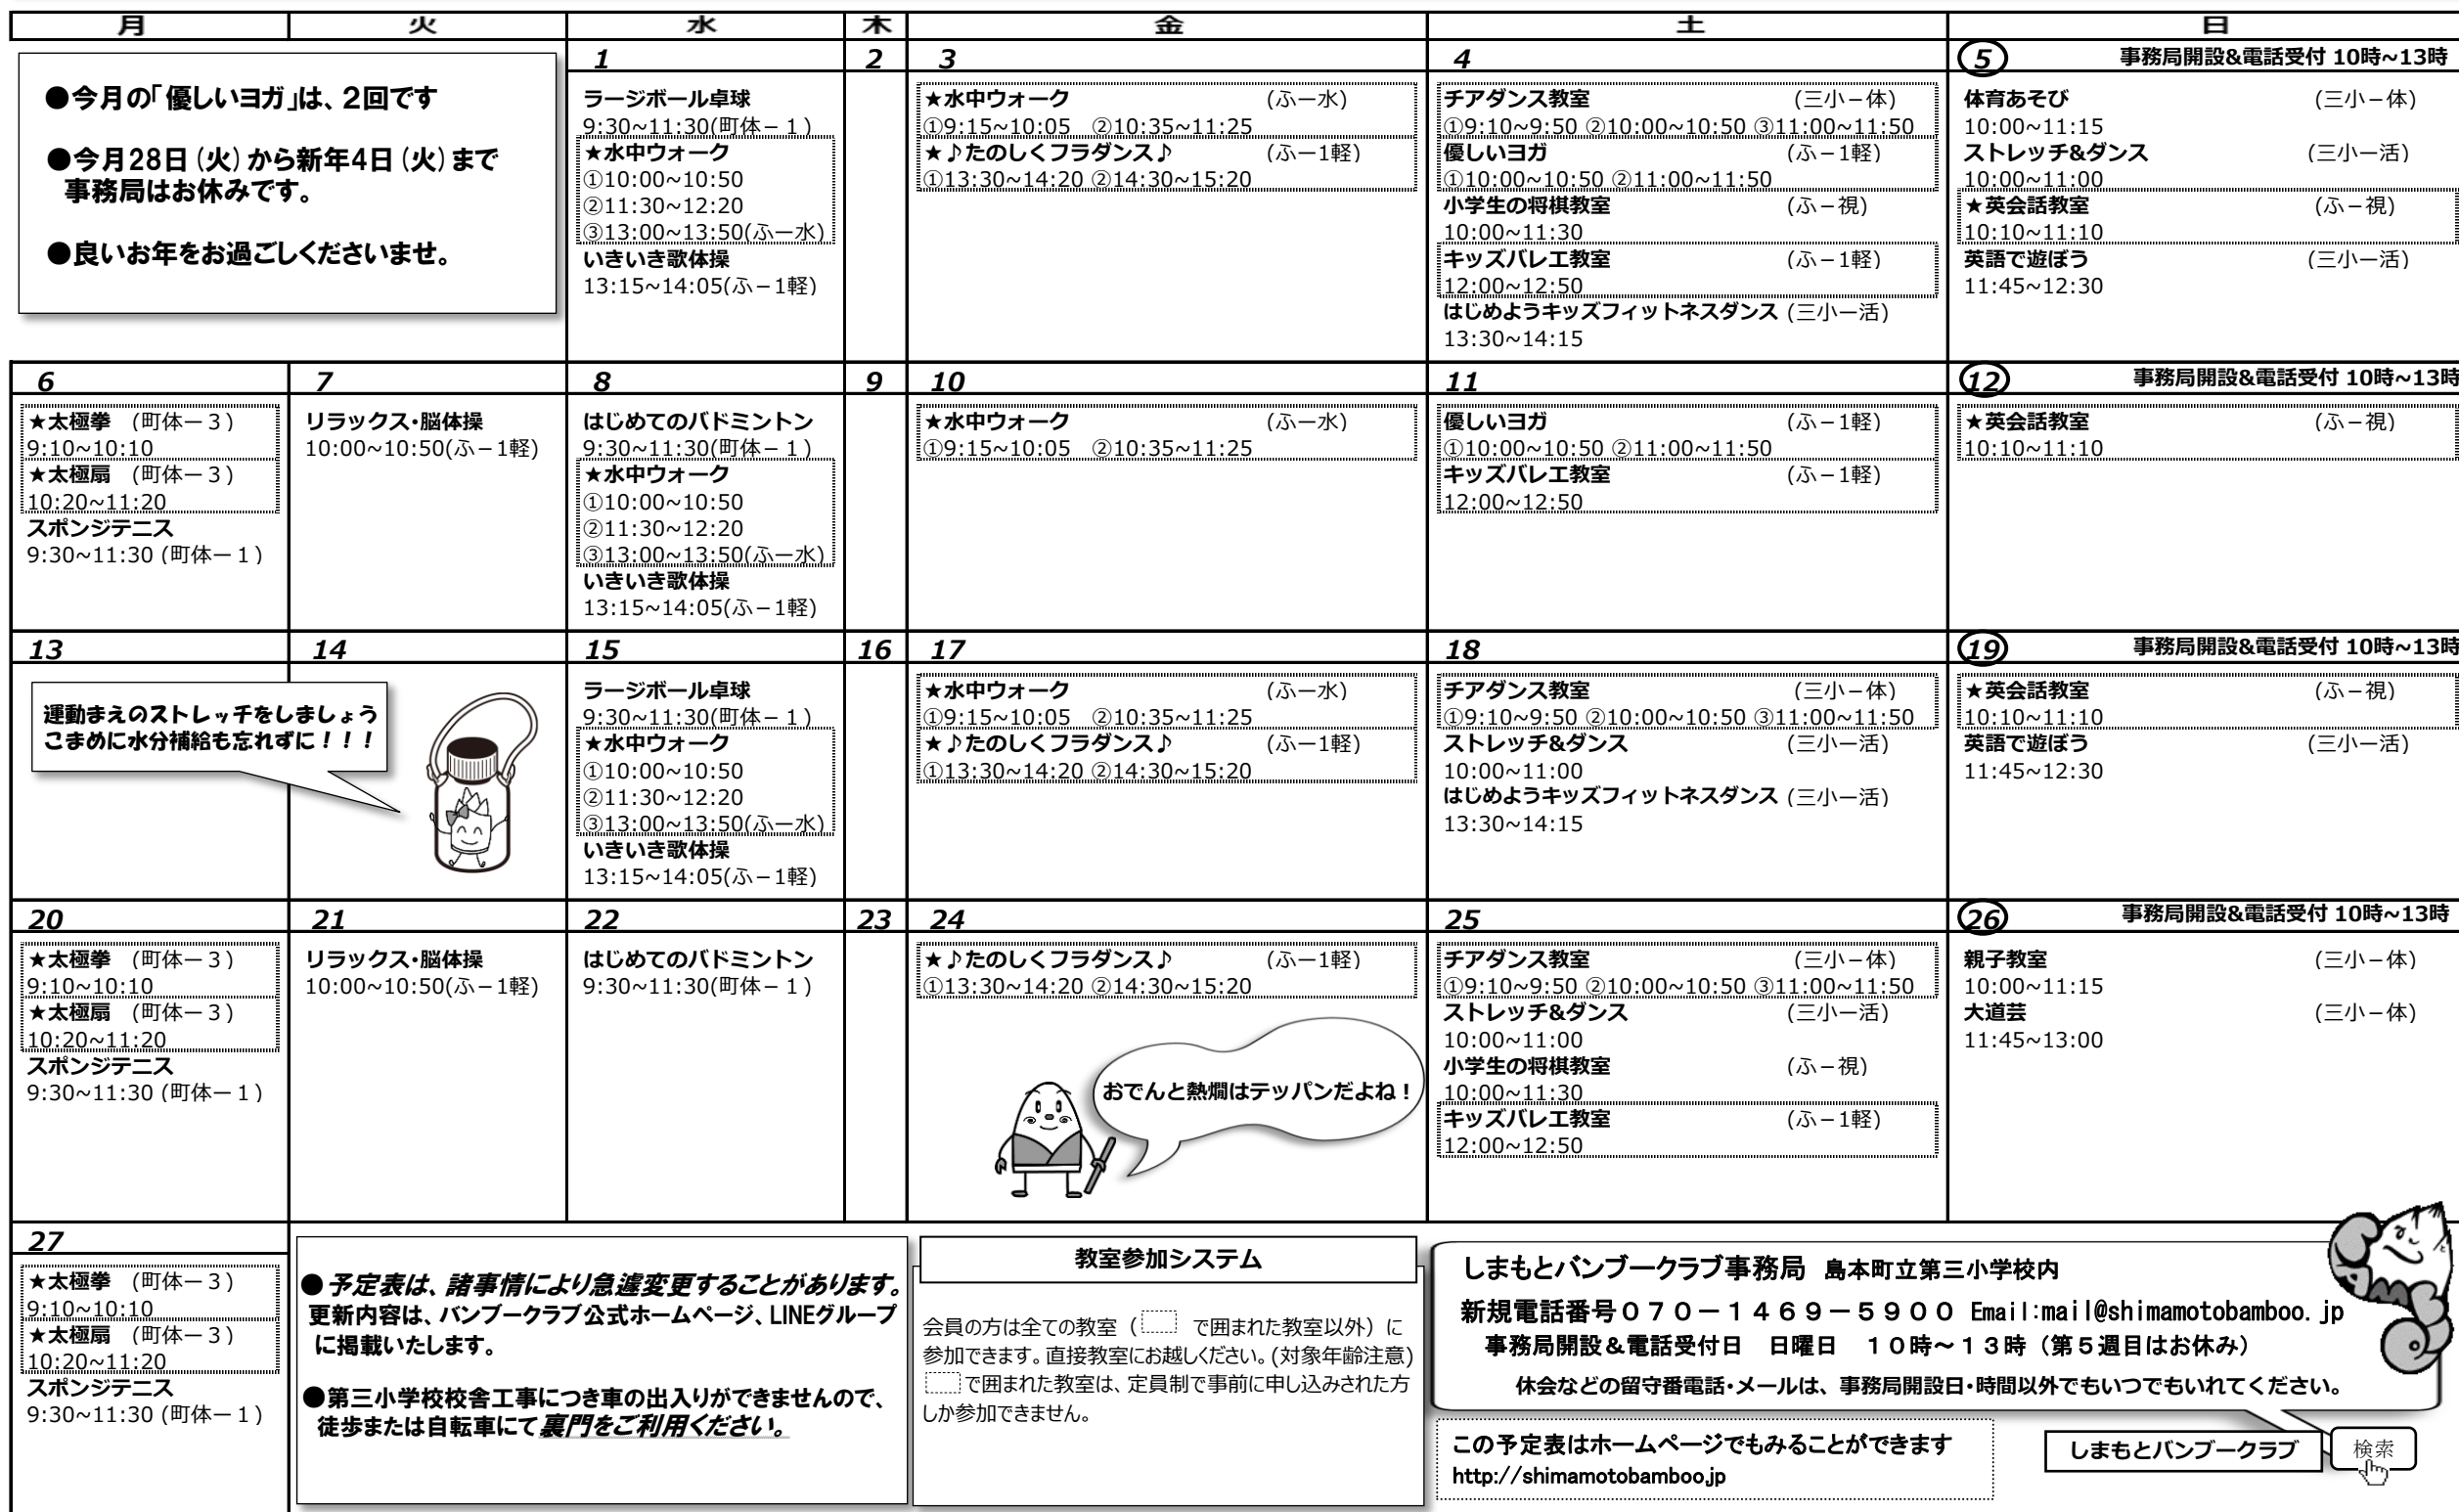 月 火 水 木 金 土 日
●今月の「優しいヨガ」は、2回です
●今月28日(火)から新年4日(火)まで
事務局はお休みです。
●良いお年をお過ごしくださいませ。
1
ラージボール卓球
9:30~11:30(町体－1)
★水中ウォーク
①10:00~10:50
②11:30~12:20
③13:00~13:50(ふー水)
いきいき歌体操
13:15~14:05(ふ－1軽)
2
3
★水中ウォーク (ふー水)
①9:15~10:05 ②10:35~11:25
★♪たのしくフラダンス♪ (ふー1軽)
①13:30~14:20 ②14:30~15:20
4
チアダンス教室 (三小－体)
①9:10~9:50 ②10:00~10:50 ③11:00~11:50
優しいヨガ (ふ－1軽)
①10:00~10:50 ②11:00~11:50
小学生の将棋教室 (ふ－視)
10:00~11:30
キッズバレエ教室 (ふ－1軽)
12:00~12:50
はじめようキッズフィットネスダンス (三小ー活)
13:30~14:15
5 事務局開設&電話受付 10時~13時
体育あそび (三小－体)
10:00~11:15
ストレッチ&ダンス (三小ー活)
10:00~11:00
★英会話教室 (ふ－視)
10:10~11:10
英語で遊ぼう (三小ー活)
11:45~12:30
6
★太極拳 (町体ー3)
9:10~10:10
★太極扇 (町体ー3)
10:20~11:20
スポンジテニス
9:30~11:30 (町体ー1)
7
リラックス・脳体操
10:00~10:50(ふ－1軽)
8
はじめてのバドミントン
9:30~11:30(町体－1)
★水中ウォーク
①10:00~10:50
②11:30~12:20
③13:00~13:50(ふー水)
いきいき歌体操
13:15~14:05(ふ－1軽)
9
10
★水中ウォーク (ふー水)
①9:15~10:05 ②10:35~11:25
11
優しいヨガ (ふ－1軽)
①10:00~10:50 ②11:00~11:50
キッズバレエ教室 (ふ－1軽)
12:00~12:50
12 事務局開設&電話受付 10時~13時
★英会話教室 (ふ－視)
10:10~11:10
13
14
運動まえのストレッチをしましょう
こまめに水分補給も忘れずに！！！
15
ラージボール卓球
9:30~11:30(町体－1)
★水中ウォーク
①10:00~10:50
②11:30~12:20
③13:00~13:50(ふー水)
いきいき歌体操
13:15~14:05(ふ－1軽)
16
17
★水中ウォーク (ふー水)
①9:15~10:05 ②10:35~11:25
★♪たのしくフラダンス♪ (ふー1軽)
①13:30~14:20 ②14:30~15:20
18
チアダンス教室 (三小－体)
①9:10~9:50 ②10:00~10:50 ③11:00~11:50
ストレッチ&ダンス (三小ー活)
10:00~11:00
はじめようキッズフィットネスダンス (三小ー活)
13:30~14:15
19 事務局開設&電話受付 10時~13時
★英会話教室 (ふ－視)
10:10~11:10
英語で遊ぼう (三小ー活)
11:45~12:30
20
★太極拳 (町体ー3)
9:10~10:10
★太極扇 (町体ー3)
10:20~11:20
スポンジテニス
9:30~11:30 (町体ー1)
21
リラックス・脳体操
10:00~10:50(ふ－1軽)
22
はじめてのバドミントン
9:30~11:30(町体－1)
23
24
★♪たのしくフラダンス♪ (ふー1軽)
①13:30~14:20 ②14:30~15:20
おでんと熱燗はテッパンだよね！
25
チアダンス教室 (三小－体)
①9:10~9:50 ②10:00~10:50 ③11:00~11:50
ストレッチ&ダンス (三小ー活)
10:00~11:00
小学生の将棋教室 (ふ－視)
10:00~11:30
キッズバレエ教室 (ふ－1軽)
12:00~12:50
26 事務局開設&電話受付 10時~13時
親子教室 (三小－体)
10:00~11:15
大道芸 (三小－体)
11:45~13:00
27
★太極拳 (町体ー3)
9:10~10:10
★太極扇 (町体ー3)
10:20~11:20
スポンジテニス
9:30~11:30 (町体ー1)
●予定表は、諸事情により急遽変更することがあります。
更新内容は、バンブークラブ公式ホームページ、LINEグループ
に掲載いたします。
●第三小学校校舎工事につき車の出入りができませんので、
徒歩または自転車にて裏門をご利用ください。
教室参加システム
会員の方は全ての教室（ で囲まれた教室以外）に
参加できます。直接教室にお越しください。(対象年齢注意)
で囲まれた教室は、定員制で事前に申し込みされた方
しか参加できません。
しまもとバンブークラブ事務局 島本町立第三小学校内
新規電話番号０７０－１４６９－５９００ Email:mail@shimamotobamboo.jp
事務局開設＆電話受付日 日曜日 １０時～１３時（第５週目はお休み）
休会などの留守番電話・メールは、事務局開設日・時間以外でもいつでもいれてください。
この予定表はホームページでもみることができます
http://shimamotobamboo.jp
しまもとバンブークラブ 検索